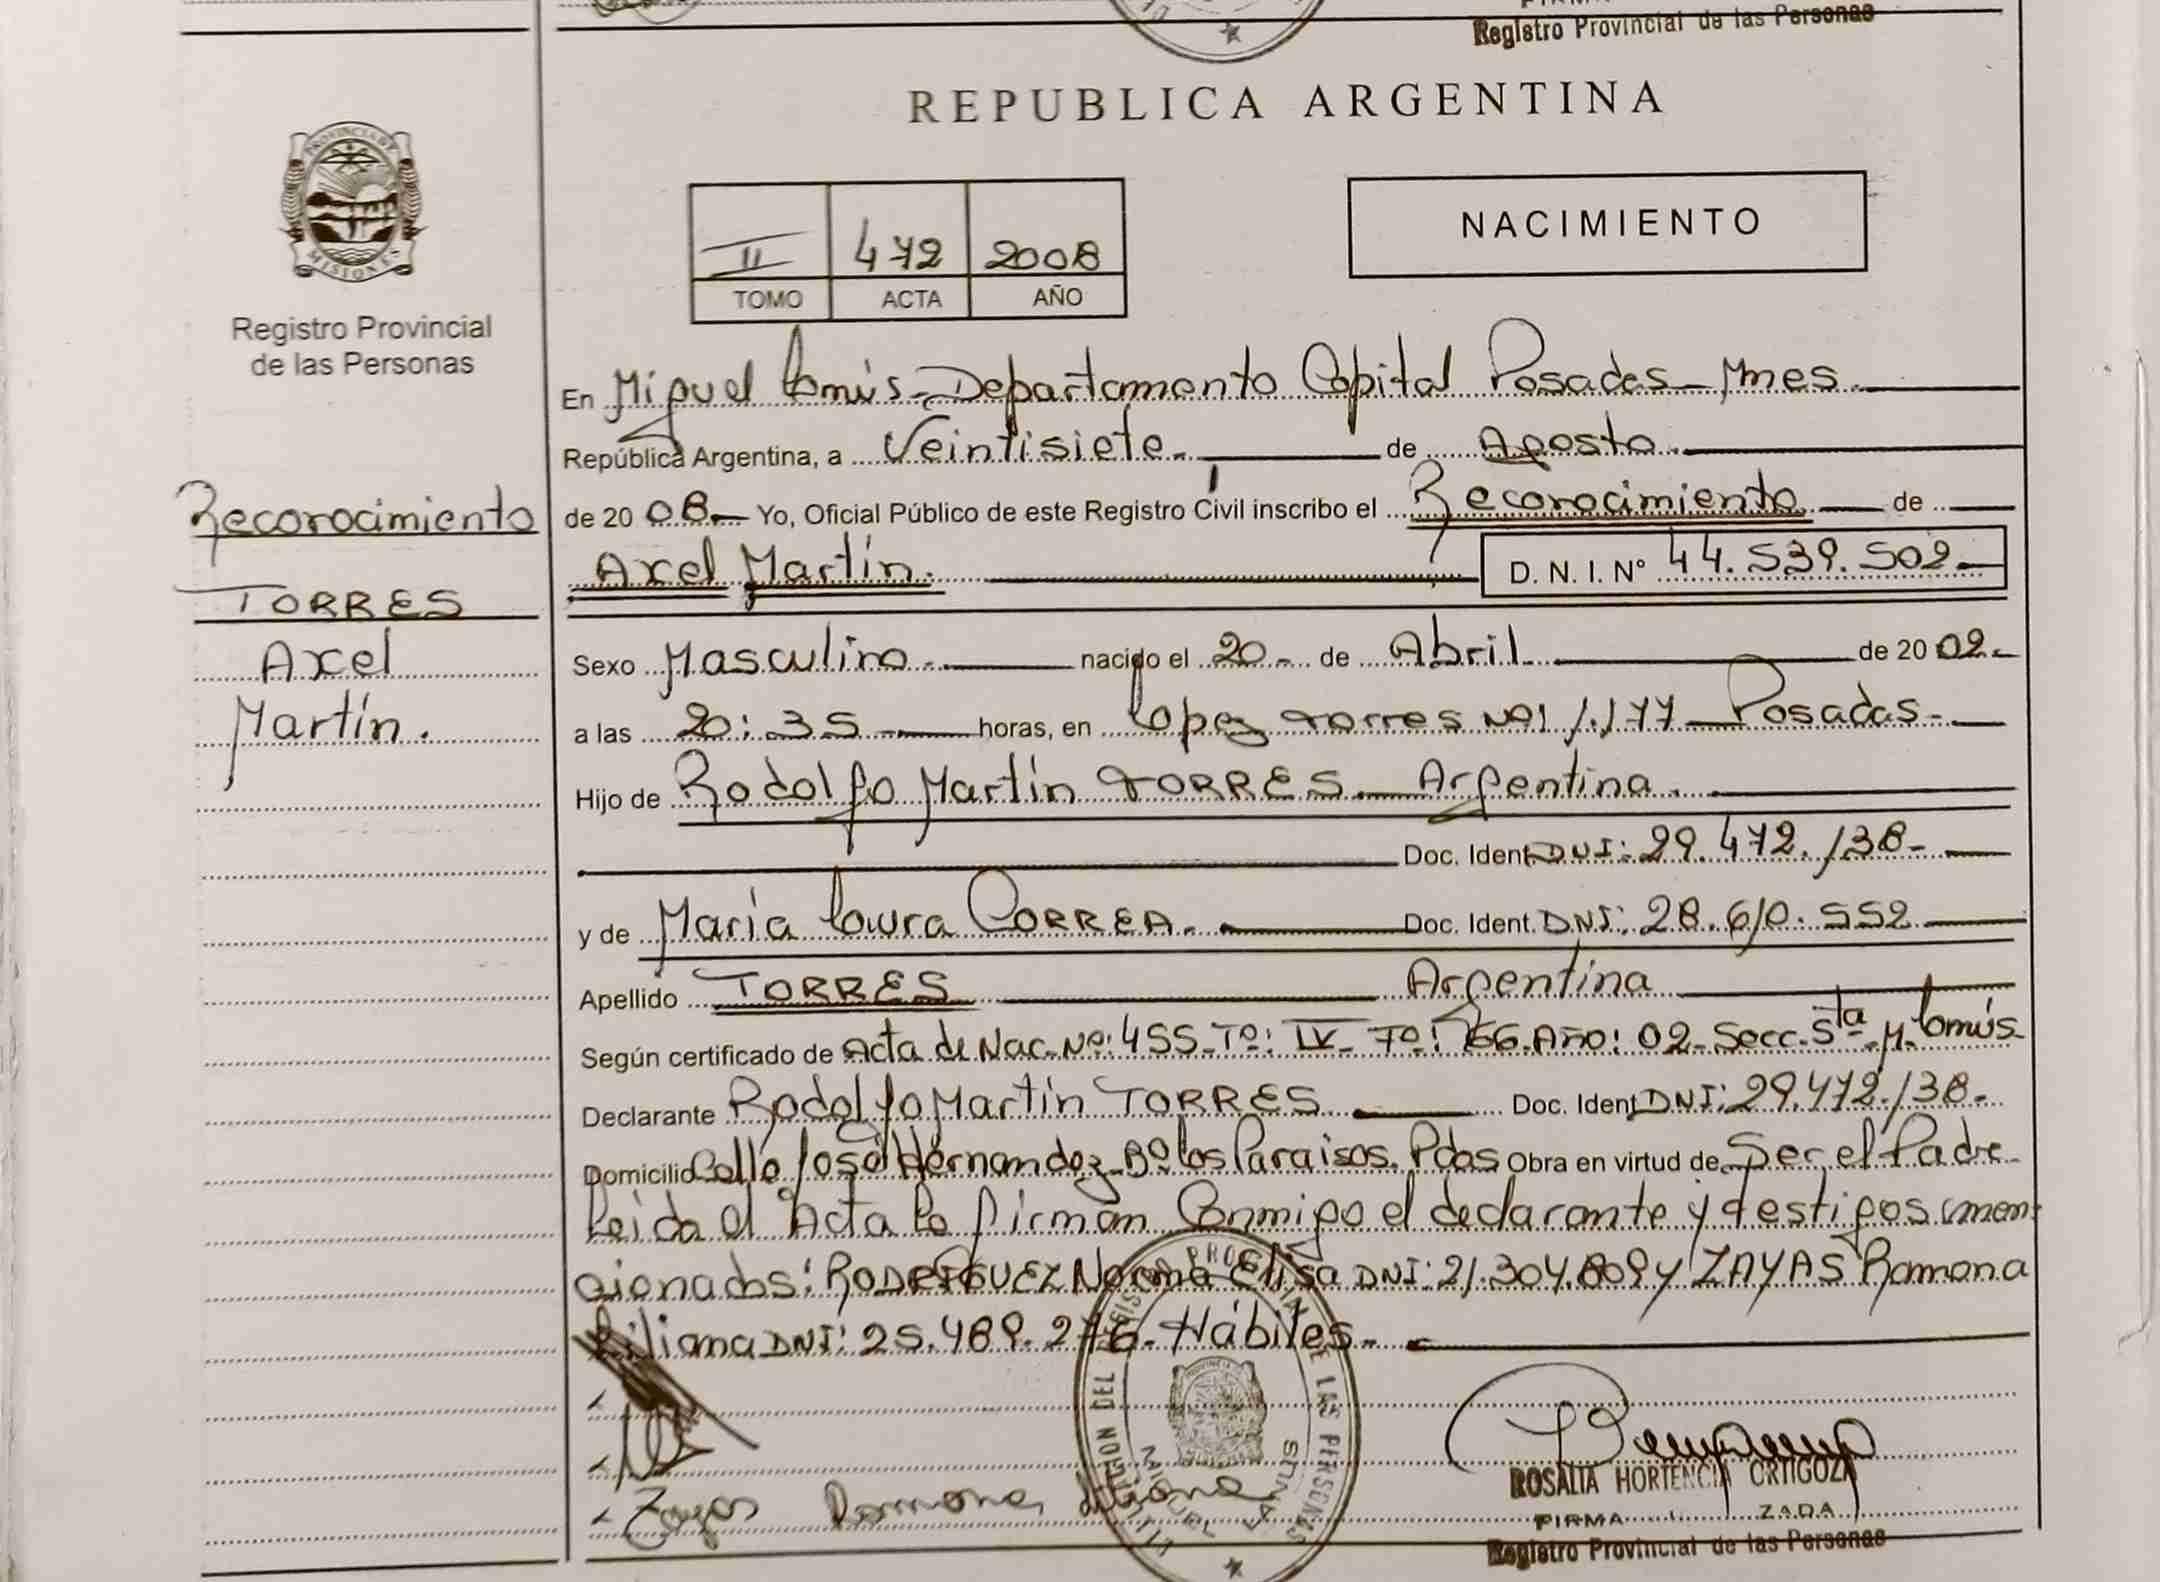 Registro Provincial de las Personas
REPUBLICA ARGENTINA
PROVINCIA DE
MISIONES
Registro Provincial
de las Personas
NACIMIENTO
II 472 2008
TOMO ACTA AÑO
En Miguel Lanús - Departamento Capital Posadas - Mnes.
República Argentina, a Veintisiete. de Agosto.
de 20 08. Yo, Oficial Público de este Registro Civil inscribo el Reconocimiento de
Axel Martín. D. N. I. Nº 44.539.502
Reconocimiento
TORRES
Axel
Martín.
Sexo Masculino. nacido el 20 de Abril de 20 02.
a las 20:35 horas, en Lopez Torres Nº 1.177 Posadas
Hijo de Rodolfo Martín TORRES Argentina.
Doc. Ident. DNI: 29.472.138
y de María Laura CORREA. Doc. Ident. DNI: 28.610.552
Apellido TORRES Argentina
Según certificado de Acta de Nac. Nº: 455 Tº: IV Fº: 66 Año: 02 Secc. 5ta M. Lanús
Declarante Rodolfo Martín TORRES Doc. Ident. DNI: 29.472.138
Domicilio Calle José Hernandez Bº Los Paraisos. Pdas Obra en virtud de Ser el Padre
Leída el Acta la firman Conmigo el declarante y testigos men
cionados: RODRIGUEZ Norma Elisa DNI: 21.304.809 y ZAYAS Ramona
Liliana DNI: 25.489.276. Hábiles.
Zayas Ramona Liliana
ROSALIA HORTENCIA ORTIGOZA
FIRMA ZADA
Registro Provincial de las Personas